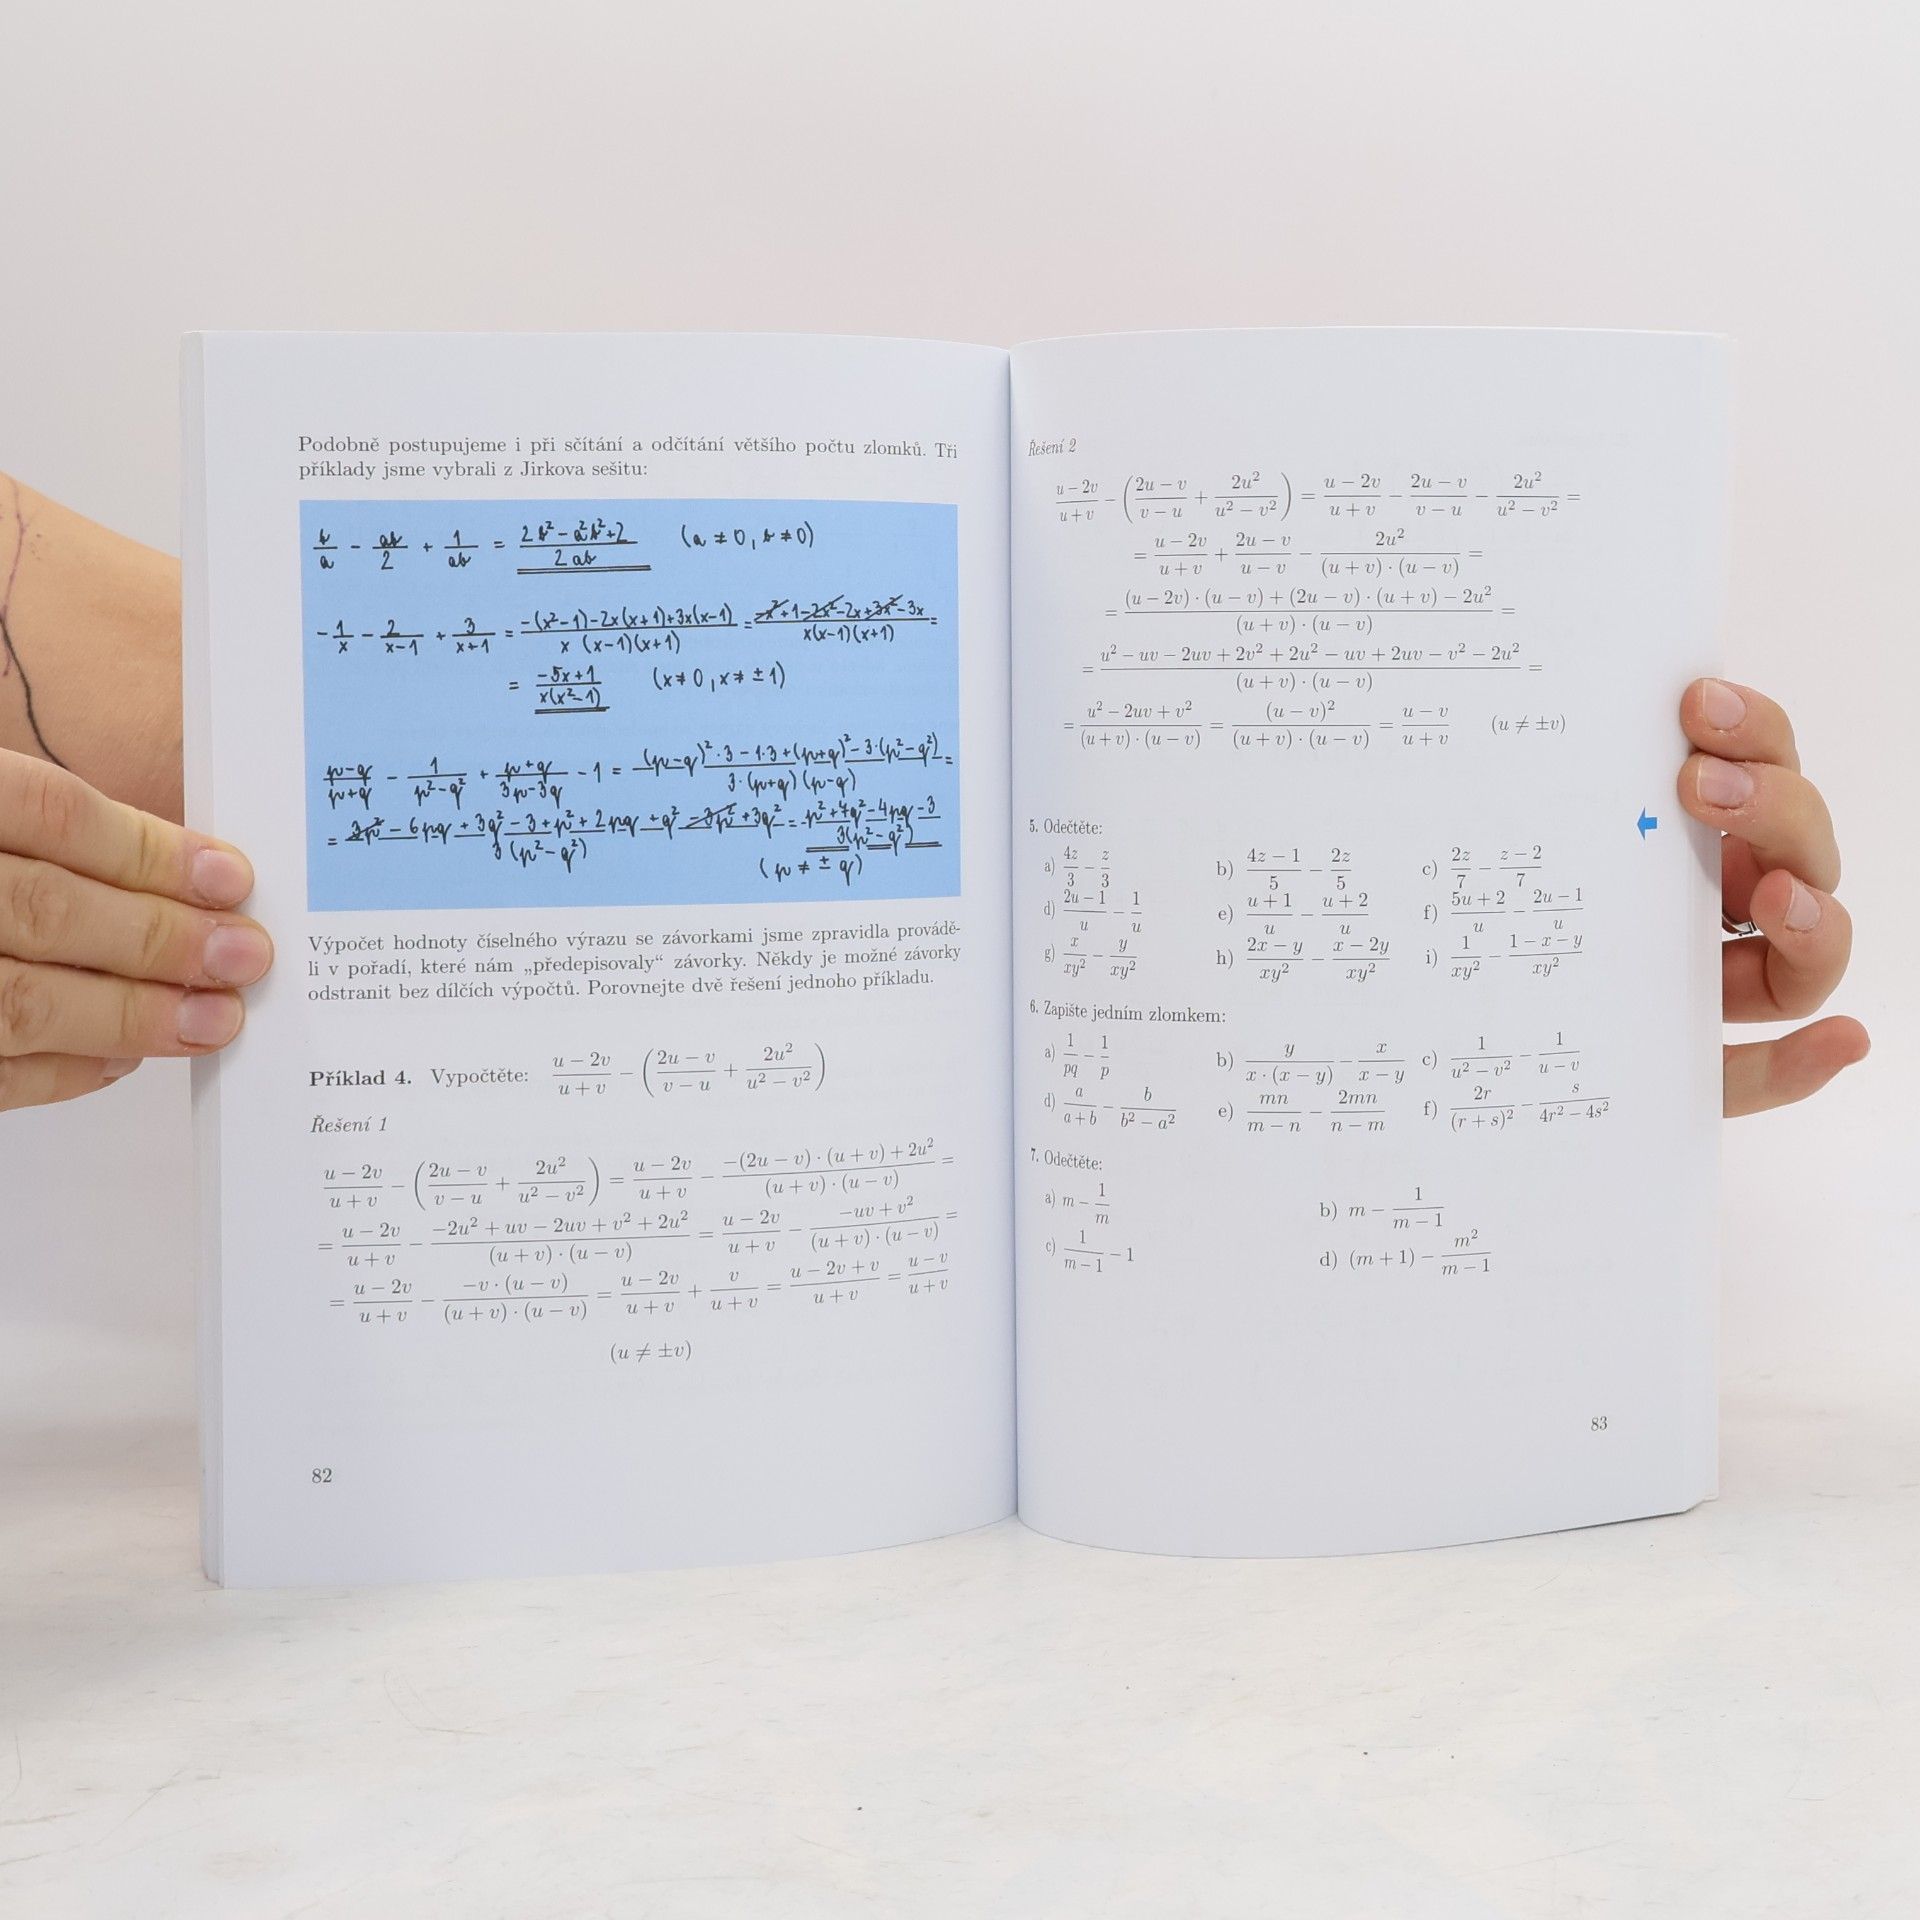 Podobně postupujeme i při sčítání a odčítání většího počtu zlomků. Tři
příklady jsme vybrali z Jirkova sešitu:
b/a − ab/2 + 1/ab = (2b² − a²b² + 2)/(2ab) (a ≠ 0, b ≠ 0)
−1/x − 2/(x−1) + 3/(x+1) = (−(x²−1)−2x(x+1)+3x(x−1))/(x (x−1)(x+1)) = (−x²+1−2x²−2x+3x²−3x)/(x(x−1)(x+1)) =
= (−5x+1)/(x(x²−1)) (x ≠ 0, x ≠ ±1)
(p−q)/(p+q) − 1/(p²−q²) + (p+q)/(3p−3q) − 1 = ((p−q)²·3 − 1·3 + (p+q)² − 3·(p²−q²))/(3·(p+q)(p−q)) =
= (3p² − 6pq + 3q² − 3 + p² + 2pq + q² − 3p² + 3q²)/(3(p²−q²)) = (p² + 7q² − 4pq − 3)/(3(p²−q²))
(p ≠ ± q)
Výpočet hodnoty číselného výrazu se závorkami jsme zpravidla prováдě-
li v pořadí, které nám „předepisovaly“ závorky. Někdy je možné závorky
odstranit bez dílčích výpočtů. Porovnejte dvě řešení jednoho příkladu.
Příklad 4. Vypočtěte: (u − 2v)/(u + v) − ((2u − v)/(v − u) + 2u²/(u² − v²))
Řešení 1
(u − 2v)/(u + v) − ((2u − v)/(v − u) + 2u²/(u² − v²)) = (u − 2v)/(u + v) − (−(2u − v) · (u + v) + 2u²)/((u + v) · (u − v)) =
= (u − 2v)/(u + v) − (−2u² + uv − 2uv + v² + 2u²)/((u + v) · (u − v)) = (u − 2v)/(u + v) − (−uv + v²)/((u + v) · (u − v)) =
= (u − 2v)/(u + v) − (−v · (u − v))/((u + v) · (u − v)) = (u − 2v)/(u + v) + v/(u + v) = (u − 2v + v)/(u + v) = (u − v)/(u + v)
(u ≠ ±v)
82
Řešení 2
(u − 2v)/(u + v) − ((2u − v)/(v − u) + 2u²/(u² − v²)) = (u − 2v)/(u + v) − (2u − v)/(v − u) − 2u²/(u² − v²) =
= (u − 2v)/(u + v) + (2u − v)/(u − v) − 2u²/((u + v) · (u − v)) =
= ((u − 2v) · (u − v) + (2u − v) · (u + v) − 2u²)/((u + v) · (u − v)) =
= (u² − uv − 2uv + 2v² + 2u² − uv + 2uv − v² − 2u²)/((u + v) · (u − v)) =
= (u² − 2uv + v²)/((u + v) · (u − v)) = (u − v)²/((u + v) · (u − v)) = (u − v)/(u + v) (u ≠ ±v)
5. Odečtěte:
a) 4z/3 − z/3 b) (4z − 1)/5 − 2z/5 c) 2z/7 − (z − 2)/7
d) (2u − 1)/u − 1/u e) (u + 1)/u − (u + 2)/u f) (5u + 2)/u − (2u − 1)/u
g) x/xy² − y/xy² h) (2x − y)/xy² − (x − 2y)/xy² i) 1/xy² − (1 − x − y)/xy²
6. Zapište jedním zlomkem:
a) 1/pq − 1/p b) y/(x · (x − y)) − x/(x − y) c) 1/(u² − v²) − 1/(u − v)
d) a/(a + b) − b/(b² − a²) e) mn/(m − n) − 2mn/(n − m) f) 2r/(r + s)² − s/(4r² − 4s²)
7. Odečtěte:
a) m − 1/m b) m − 1/(m − 1)
c) 1/(m − 1) − 1 d) (m + 1) − m²/(m − 1)
83